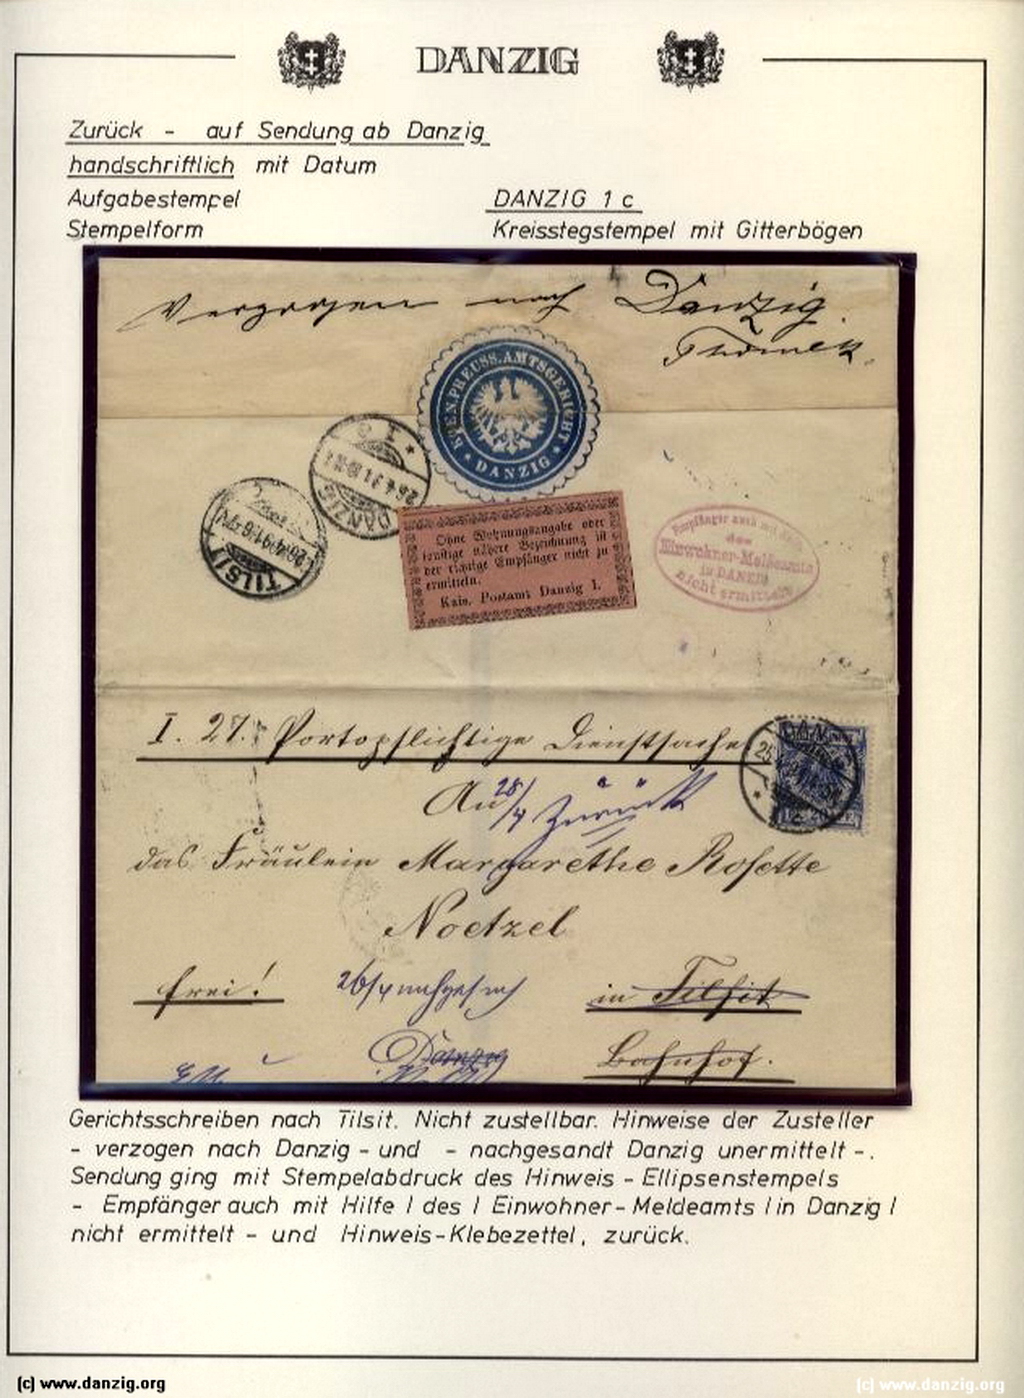 DANZIG
Zurück - auf Sendung ab Danzig
handschriftlich mit Datum
Aufgabestempel DANZIG 1 c
Stempelform Kreisstegstempel mit Gitterbögen
Verzogen nach Danzig.
KOEN. PREUSS. AMTSGERICHT
* DANZIG *
DANZIG
* 1 c
26.4.91.
TILSIT
26.4.91.
Ohne Wohnungsangabe oder
sonstige nähere Bezeichnung ist
der richtige Empfänger nicht zu
ermitteln.
Kais. Postamt Danzig 1.
Empfänger auch mit Hilfe
des
Einwohner-Meldeamts
in DANZIG
nicht ermittelt
I. 27. Portopflichtige Dienstsache
DAN
25
An 28/4 Zurück
das Fräulein Margarethe Rosette
Noetzel
frei! 26/4 nachgesandt in Tilsit
Danzig Bahnhof.
Gerichtsschreiben nach Tilsit. Nicht zustellbar. Hinweise der Zusteller
- verzogen nach Danzig - und - nachgesandt Danzig unermittelt -.
Sendung ging mit Stempelabdruck des Hinweis - Ellipsenstempels
- Empfänger auch mit Hilfe / des / Einwohner-Meldeamts / in Danzig /
nicht ermittelt - und Hinweis-Klebezettel, zurück.
(c) www.danzig.org (c) www.danzig.org